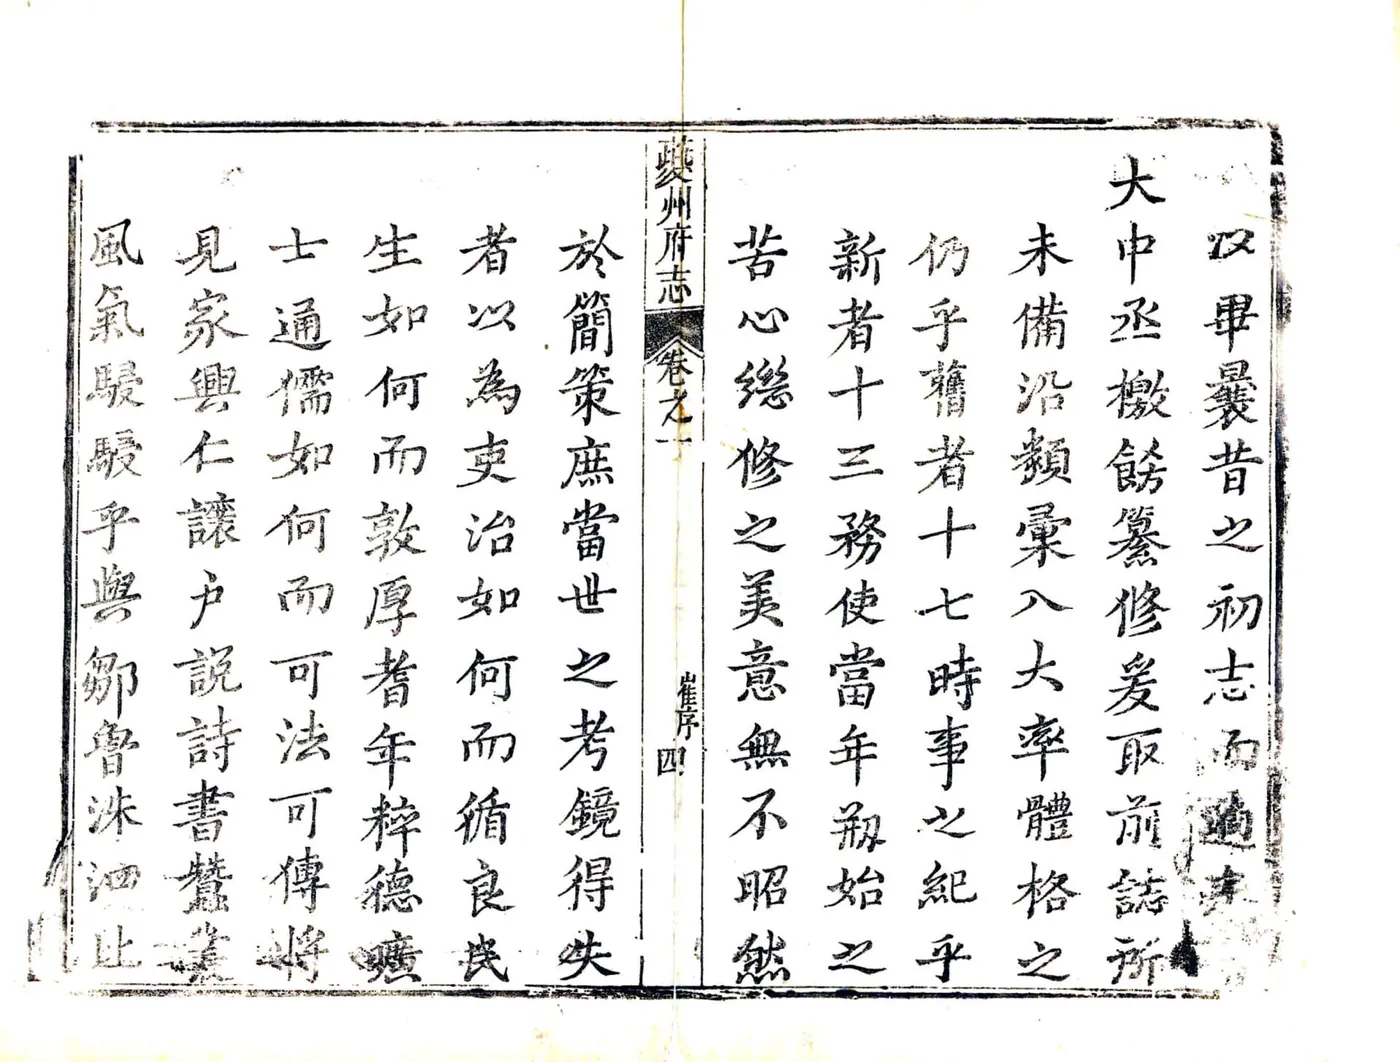 以畢曩昔之初志而適奉
大中丞檄飭纂修爰取前誌所
未備沿類彙入大率體格之
仍乎舊者十七時事之紀乎
新者十三務使當年剏始之
苦心繼修之美意無不昭然
夔州府志
卷之一
崔序
四
於簡策庶當世之考鏡得失
者以為吏治如何而循良民
生如何而敦厚耆年粹德曠
士通儒如何而可法可傳將
見家興仁讓戶說詩書蠶叢
風氣駸駸乎與鄒魯洙泗比